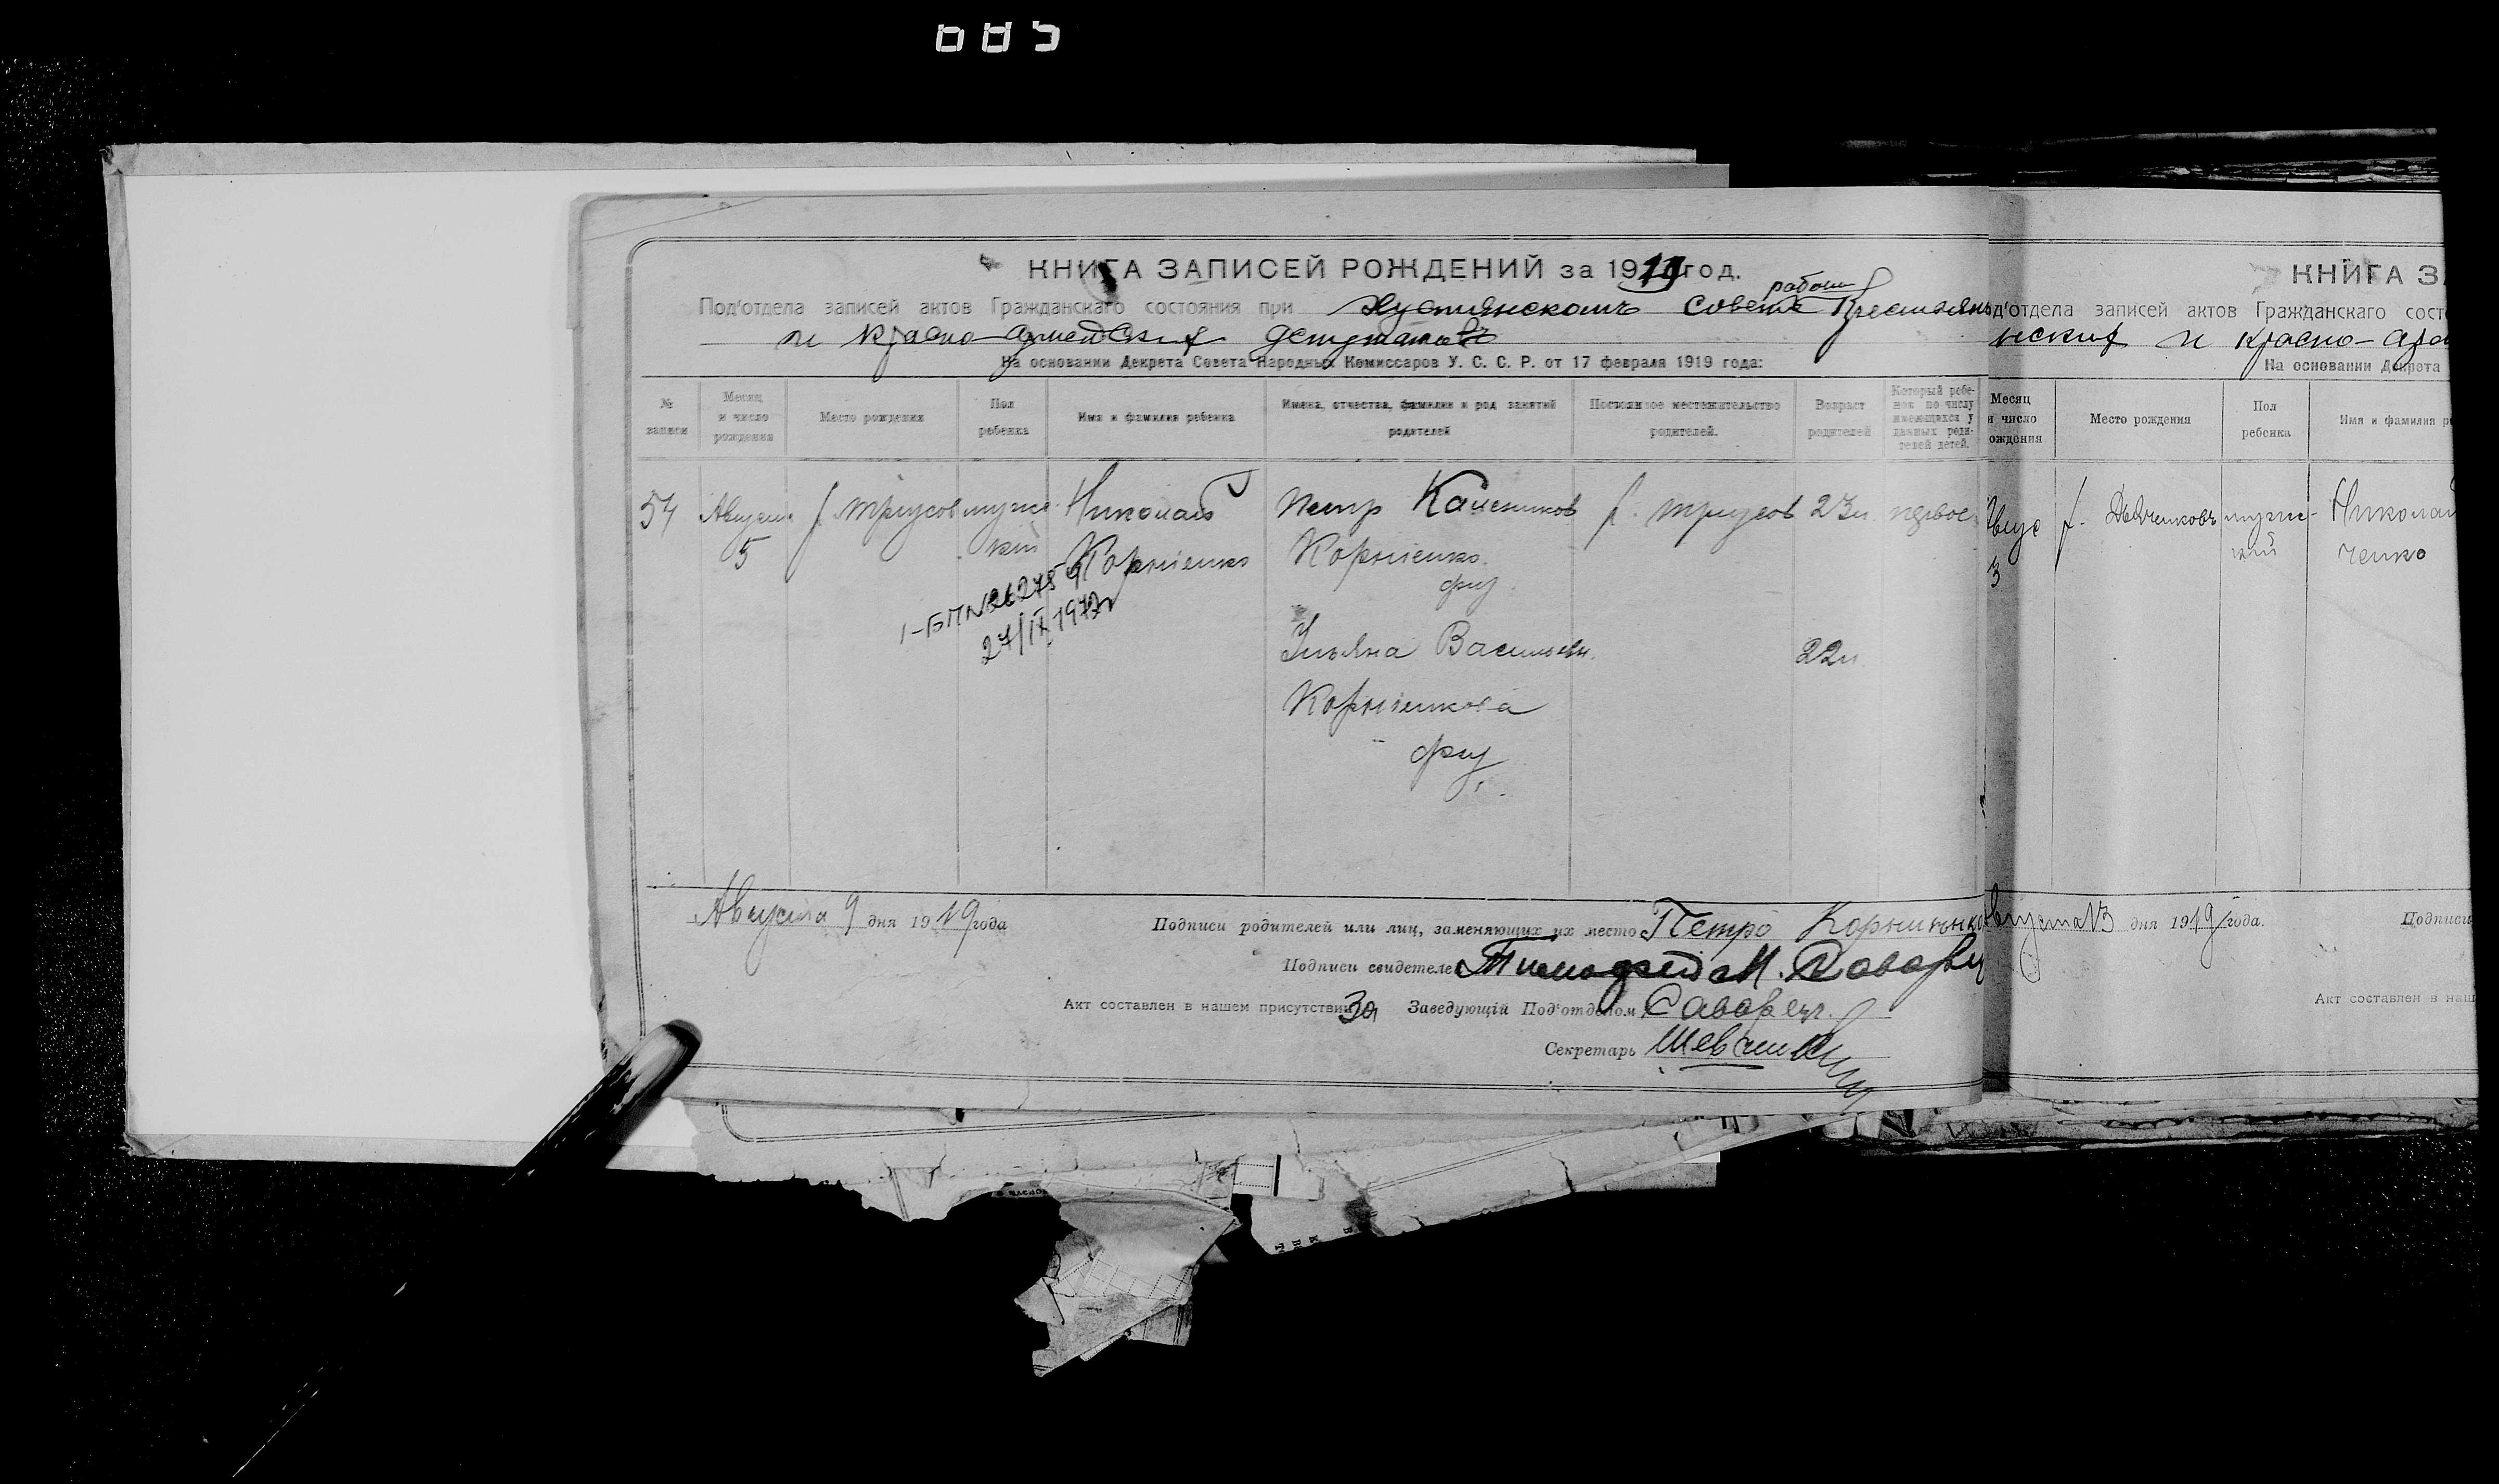 КНИГА ЗАПИСЕЙ РОЖДЕНИЙ за 1919 год.
Под'отдела записей актов Гражданскаго состояния при Хустянскомъ Совете рабочи Крестьянь
и красно-армейских депутатовъ
На основании Декрета Совета Народных Комиссаров У. С. С. Р. от 17 февраля 1919 года:
№ записи
Месяц и число рождения
Место рождения
Пол ребенка
Имя и фамилия ребенка
Имена, отчества, фамилии и род занятий родителей
Постоянное местожительство родителей.
Возраст родителей
Который ребенок по числу имеющихся у данных родителей детей.
57 Августа х. Трусов мужс Николай Петр х. Трусов 23 л. первое
5 кий Корниенко Корниенко
1-БП № 262759
27/IX 1972 г
Ульяна Васильевн. 22 л.
Корниенкова
Августа 9 дня 1919 года
Подписи родителей или лиц, заменяющих их место Петро Корниенко
Подписи свидетеле Тимофей М. Саварец
Акт составлен в нашем присутствии За Заведующій Под'отделом Саварец.
Секретарь Шевченко
КНИГА З
д'отдела записей актов Гражданскаго сост
нских и красно-арм
На основании Декрета
Месяц
и число
ождения
Место рождения
Пол ребенка
Имя и фамилия р
Авгус х. мужс- Николай
3 кий ченко
Августа 13 дня 1919 года.
Подписи
Акт составлен в наш